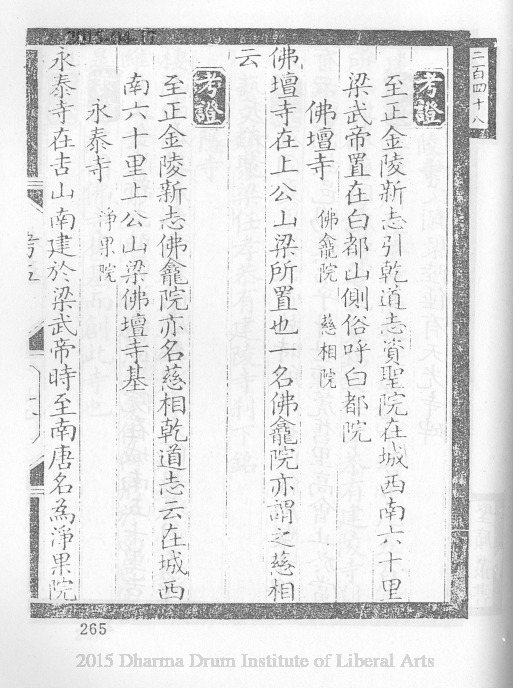 二百四十八
考證
至正金陵新志引乾道志資聖院在城西南六十里
梁武帝置在白都山側俗呼白都院
佛壇寺 佛龕院 慈相院
佛壇寺在上公山梁所置也一名佛龕院亦謂之慈相
云
考證
至正金陵新志佛龕院亦名慈相乾道志云在城西
南六十里上公山梁佛壇寺基
永泰寺 淨果院
永泰寺在吉山南建於梁武帝時至南唐名為淨果院
265
2015 Dharma Drum Institute of Liberal Arts